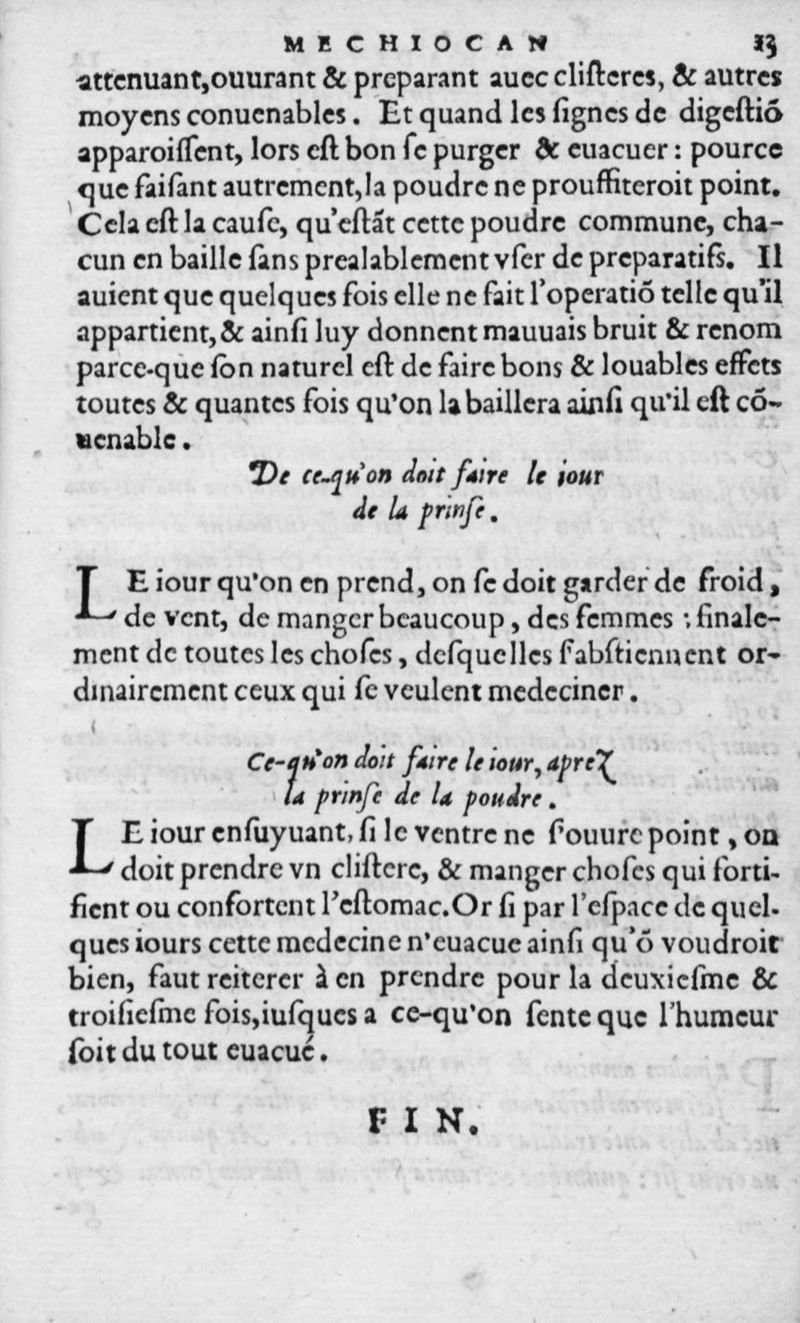 MECHIOCAN 13
attenuant,ouurant & preparant auec cliſteres, & autres
moyens conuenables. Et quand les ſignes de digeſtiõ
apparoiſſent, lors eſt bon ſe purger & euacuer: pource
que faiſant autrement,la poudre ne prouffiteroit point.
Cela eſt la cauſe, qu'eſtãt cette poudre commune, cha-
cun en baille ſans prealablement vſer de preparatifs. Il
auient que quelques fois elle ne fait l'operatiõ telle qu'il
appartient,& ainſi luy donnent mauuais bruit & renom
parce-que ſon naturel eſt de faire bons & louables effets
toutes & quantes fois qu'on la baillera ainſi qu'il eſt cõ-
uenable.
De ce-qu'on doit faire le iour
de la prinſe.
LE iour qu'on en prend, on ſe doit garder de froid,
de vent, de manger beaucoup, des femmes: finale-
ment de toutes les choſes, deſquelles ſ'abſtiennent or-
dinairement ceux qui ſe veulent medeciner.
Ce-qu'on doit faire le iour, aprez
la prinſe de la poudre.
LE iour enſuyuant, ſi le ventre ne ſ'ouure point, on
doit prendre vn cliſtere, & manger choſes qui forti-
fient ou confortent l'eſtomac.Or ſi par l'eſpace de quel-
ques iours cette medecine n'euacue ainſi qu'õ voudroit
bien, faut reiterer à en prendre pour la deuxieſme &
troiſieſme fois,iuſques a ce-qu'on ſente que l'humeur
ſoit du tout euacué.
FIN.